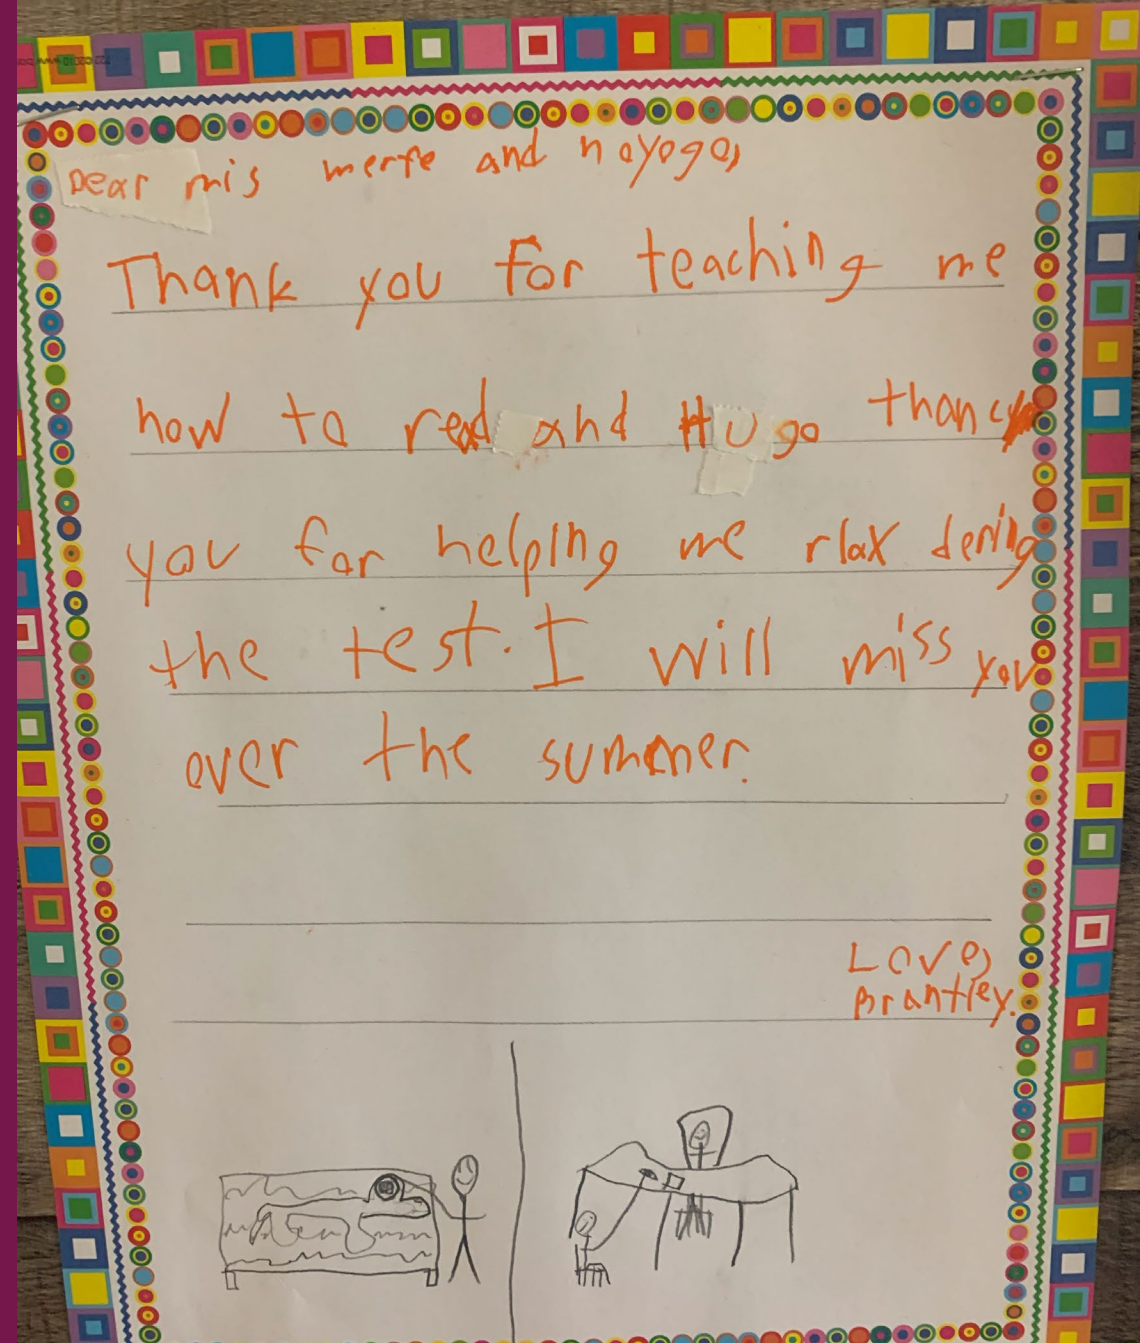 Dear mis merfe and hoyogo,
Thank you for teaching me
how to read and Hugo thanc
you for helping me rlax dering
the test. I will miss you
over the summer.
Love,
Brantley.